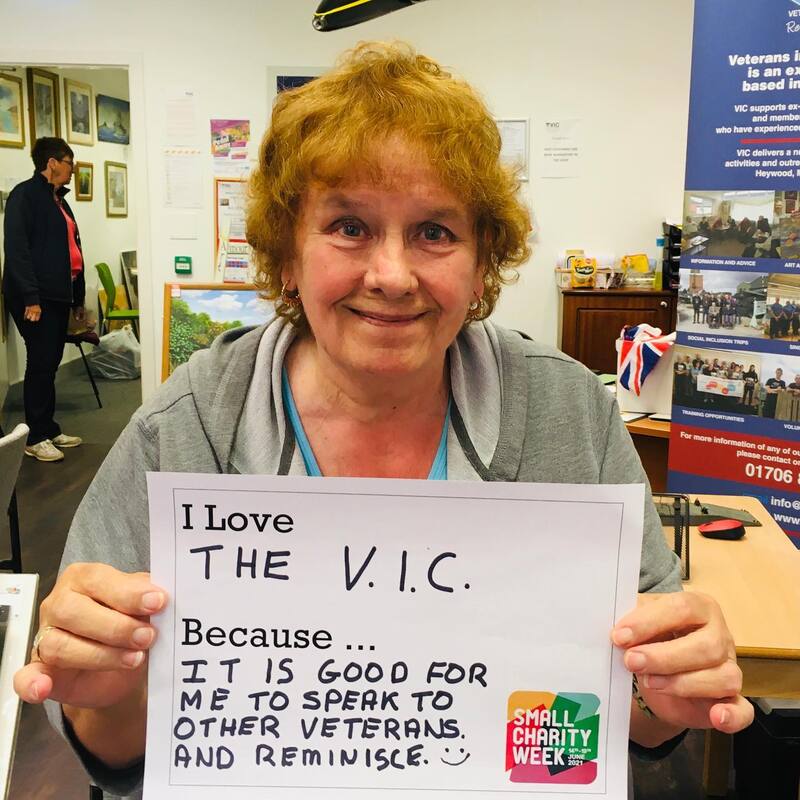 I Love
THE V.I.C.
Because ...
IT IS GOOD FOR
ME TO SPEAK TO
OTHER VETERANS.
AND REMINISCE.
SMALL
CHARITY
WEEK 14TH-19TH
JUNE
2021
VIC
Veterans i
is an ex
based in
VIC supports ex-
and membe
who have experience
VIC delivers a n
activities and outre
Heywood, M
INFORMATION AND ADVICE
ART A
SOCIAL INCLUSION TRIPS
TRAINING OPPORTUNITIES
VOLU
For more information of any of ou
please contact o
01706 8
info@
www.